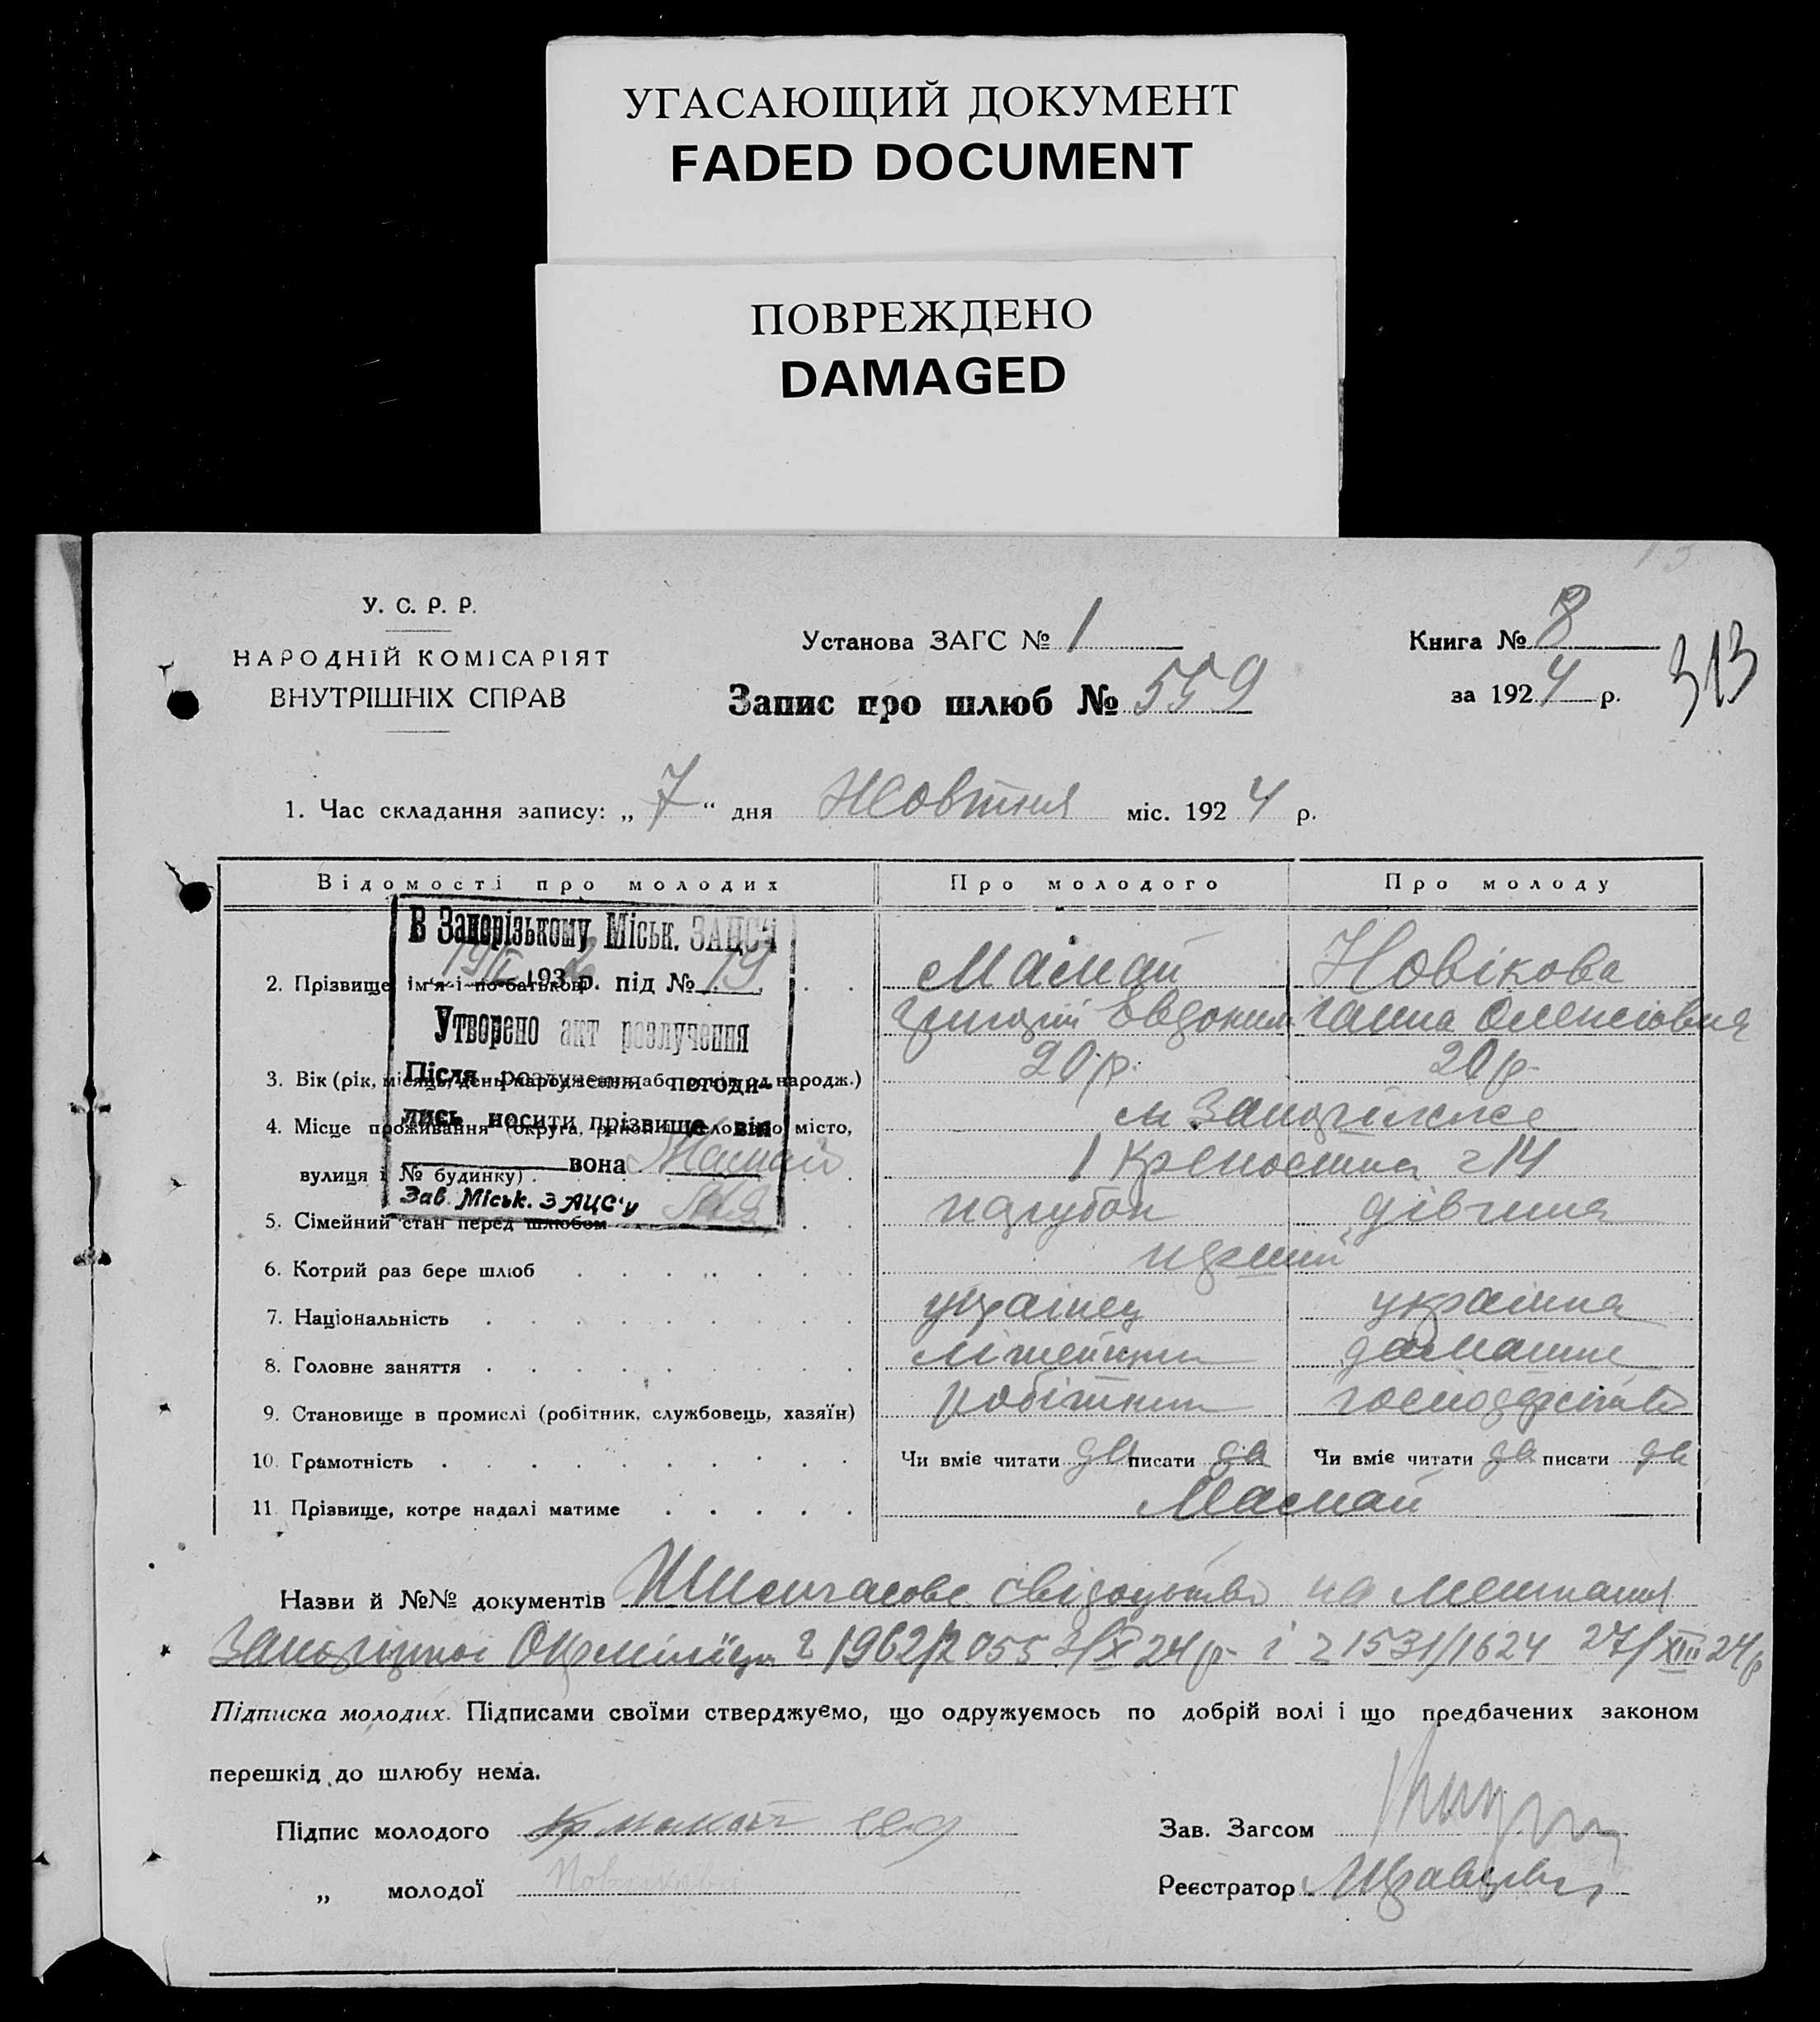 УГАСАЮЩИЙ ДОКУМЕНТ
FADED DOCUMENT
ПОВРЕЖДЕНО
DAMAGED
У. С. Р. Р.
НАРОДНІЙ КОМІСАРІЯТ
ВНУТРІШНІХ СПРАВ
Установа ЗАГС № 1
Запис про шлюб № 559
Книга № 8
за 1924 р.
313
1. Час складання запису: „7“ дня Жовтня міс. 1924 р.
Відомості про молодих
Про молодого
Про молоду
В Запорізькому Міськ. ЗАЦС'і
193 р. під № 19
Утворено акт розлучення
Після розлучення погоди-
лись носити прізвище він
вона Мамай
Зав. Міськ. ЗАЦС'у
2. Прізвище, ім'я і по батькові
Мамай
Новікова
Григорій Евдоким
Ганна Олексіовна
3. Вік (рік, місяць, день народження або років од народж.)
20 р.
20 р.
4. Місце проживання (округа, район, село або місто,
м Запоріжже
вулиця і № будинку)
1 Крепостна 214
5. Сімейний стан перед шлюбом
парубок
дівчина
6. Котрий раз бере шлюб
перший
7. Національність
українец
українка
8. Головне заняття
літейник
домашнє
9. Становище в промислі (робітник, службовець, хазяїн)
робітник
господарство
10. Грамотність
Чи вміє читати да писати да
Чи вміє читати да писати да
11. Прізвище, котре надалі матиме
Мамай
Назви й №№ документів Тимчасове свідоцтво на мешкання
Запорізької Окрміліції 2 1962/2055 2/X 24 р. і 2 1531/1624 27/XIII 24 р
Підписка молодих. Підписами своїми стверджуємо, що одружуємось по добрій волі і що предбачених законом
перешкід до шлюбу нема.
Підпис молодого
Мамай
Зав. Загсом
„ молодої
Новікова
Реєстратор